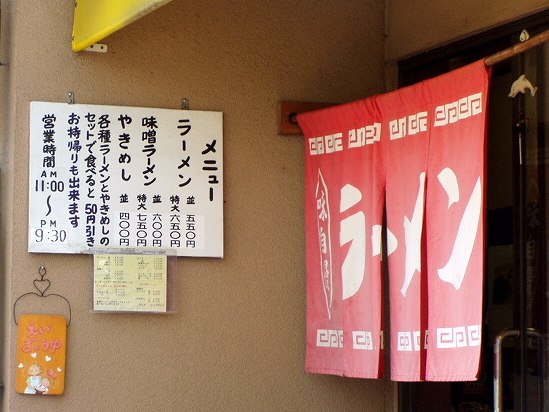 メニュー
ラーメン 並 五五〇円
特大 六五〇円
味噌ラーメン 並 六〇〇円
特大 七五〇円
やきめし 並 四〇〇円
各種ラーメンとやきめしの
セットで食べると50円引き
お持帰りも出来ます
営業時間
AM
11:00
〜
PM
9:30
ラーメン
味自慢
えい
ぎょうちゅう